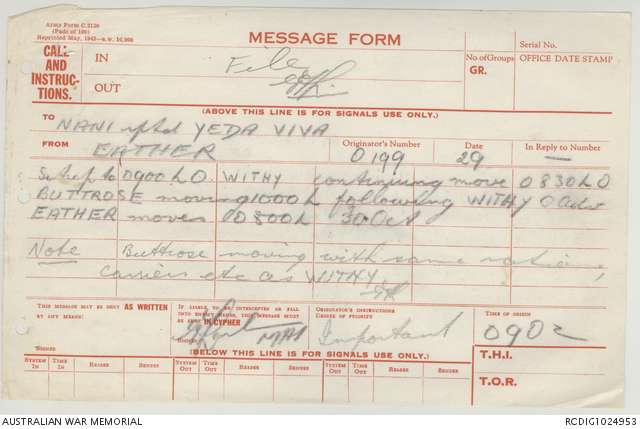 Army Form C.2136
(Pads of 100)
Reprinted May, 1943
MESSAGE FORM
Serial No.
CALL AND INSTRUC-TIONS.
IN
OUT
File
No. of Groups
GR.
OFFICE DATE STAMP
(ABOVE THIS LINE IS FOR SIGNALS USE ONLY.)
TO NANI rptd YEDA VIVA
FROM EATHER
Originator's Number 0199
Date 29
In Reply to Number —
Sitrep to 0900 L O WITHY continuing move 0830 L O
BUTTROSE moving 1000 L following WITHY O
EATHER moves 0800L 30 Oct
Note Buttrose moving with same rations,
carriers etc as WITHY
THIS MESSAGE MAY BE SENT AS WRITTEN BY ANY MEANS.
IF LIABLE TO BE INTERCEPTED OR FALL INTO ENEMY HANDS, THIS MESSAGE MUST BE SENT IN CYPHER
ORIGINATOR'S INSTRUCTIONS
DEGREE OF PRIORITY
Important
TIME OF ORIGIN
0902
SIGNED
T.H.I.
T.O.R.
(BELOW THIS LINE IS FOR SIGNALS USE ONLY.)
SYSTEM IN TIME IN READER SENDER SYSTEM OUT TIME OUT READER SENDER SYSTEM OUT TIME OUT READER SENDER
AUSTRALIAN WAR MEMORIAL
RCDIG1024953